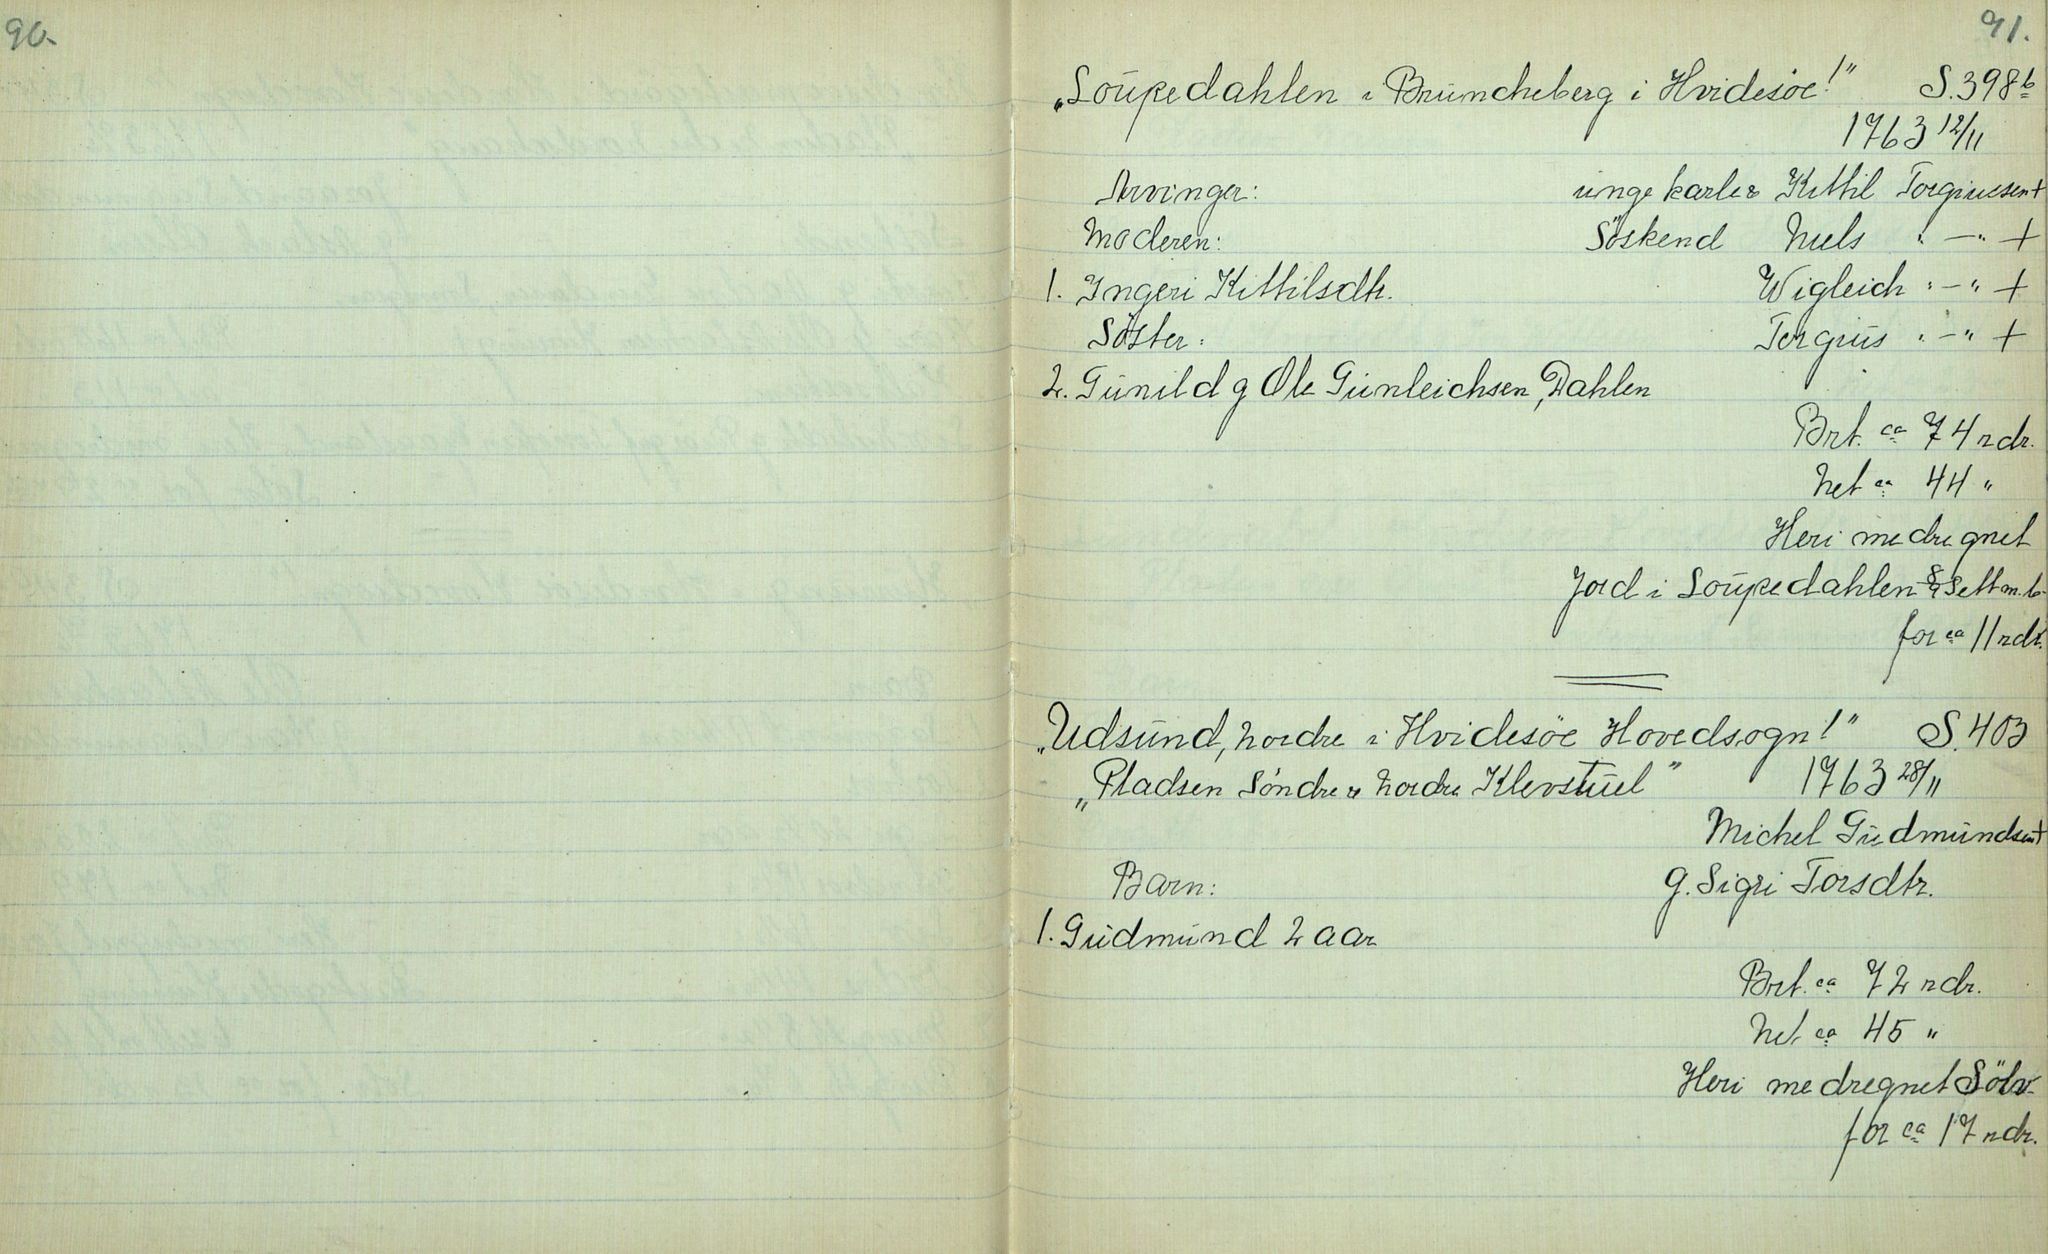 90.
91.
„Loupedahlen i Bruncheberg i Hvidesöe!" S. 398 b
1763 12/11
Arvinger: unge karle Kittil Torgiussen +
Moderen: Söskend Niels " — " +
1. Ingeri Kittilsdtr. Wigleich " — " +
Söster: Torgius " — " +
2. Gunild g Ole Gunleichsen, Dahlen
Brt. ca 74 rdr.
Net ca 44 "
Heri medregnet
Jord i Loupedahlen sett m. b.
for ca 11 rdr.
„Udsund, nordre i Hvidesöe Hovedsogn!" S. 403
„Pladsen Söndre & nordre Klevstuel" 1763 28/11
Michel Gudmundsen +
Barn: g. Sigri Torsdtr.
1. Gudmund 2 aar
Brt. ca 72 rdr.
Net. ca 45 "
Heri medregnet Sölv
for ca 17 rdr.